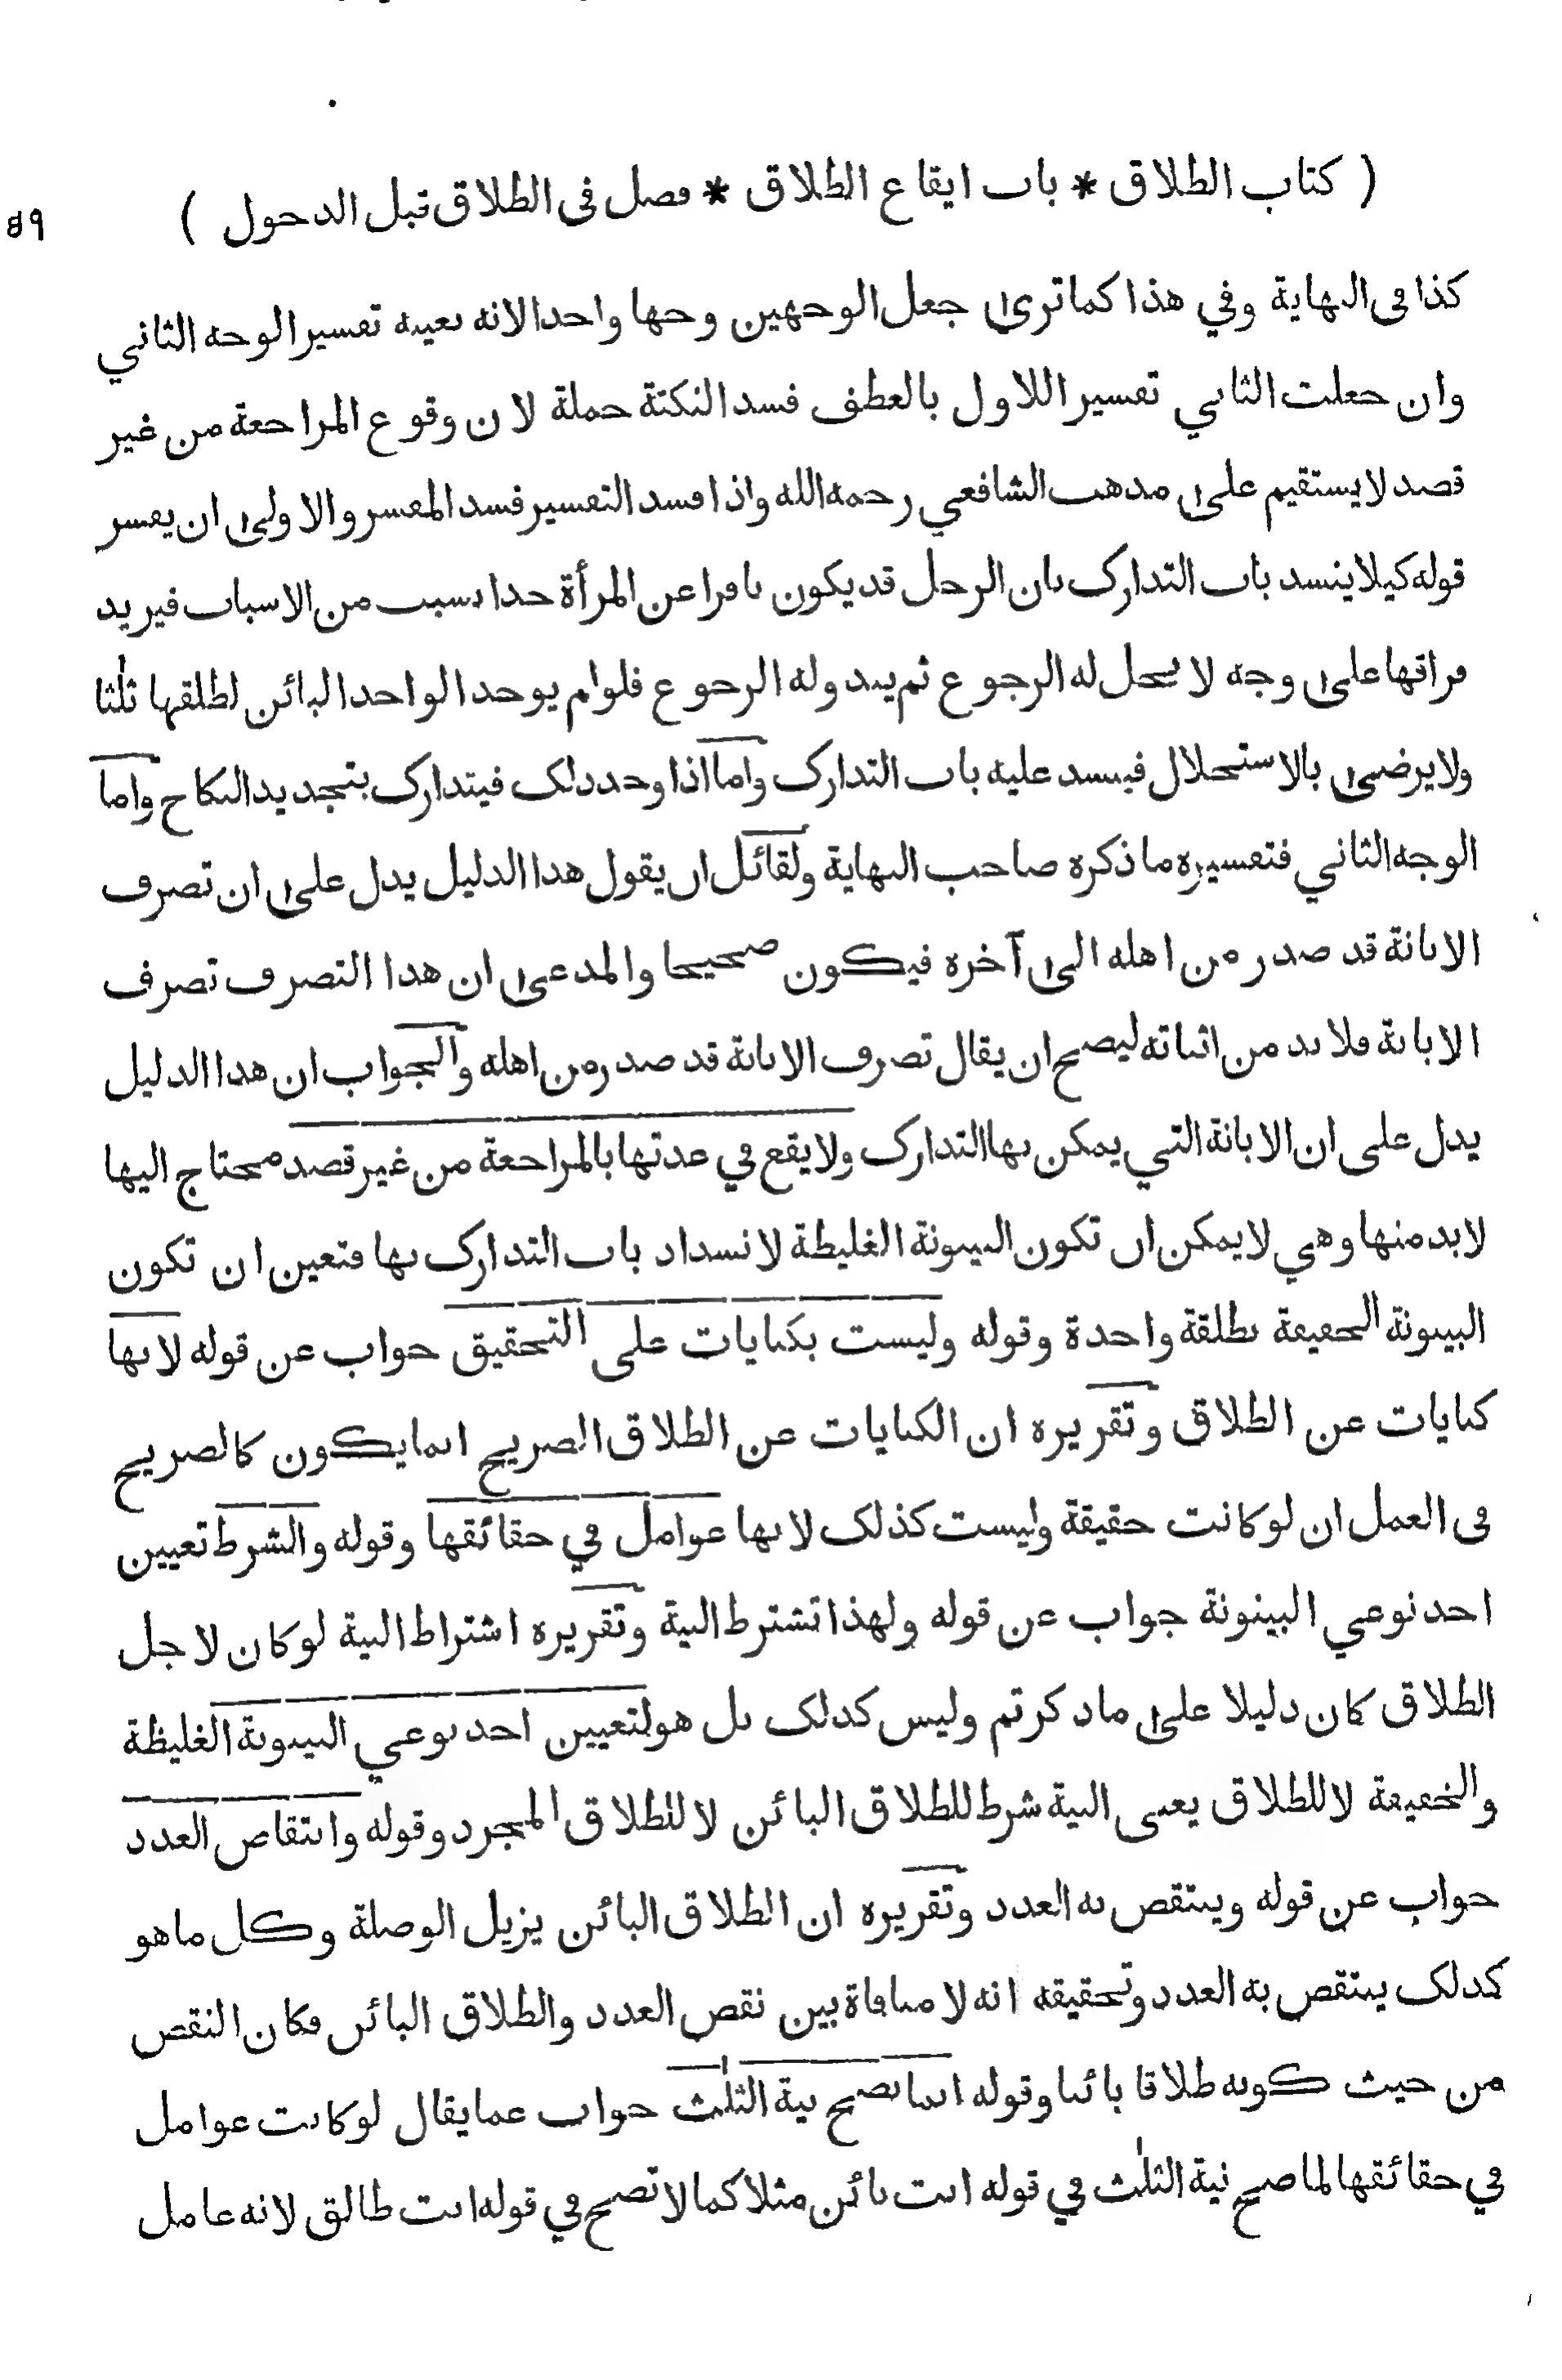 ( كتاب الطلاق * باب ايقاع الطلاق * فصل في الطلاق قبل الدخول ) ٤٩
كذا في النهاية وفي هذا كما ترى جعل الوجهين وجها واحدا لانه بعينه تفسير الوجه الثاني
وان جعلت الثاني تفسير اللاول بالعطف فسد النكتة جملة لان وقوع المراجعة من غير
قصد لا يستقيم على مذهب الشافعي رحمه الله واذا فسد التفسير فسد المفسر والاولى ان يفسر
قوله كيلا ينسد باب التدارك بان الرجل قد يكون نافرا عن المرأة جدا بسبب من الاسباب فيريد
فراقها على وجه لا يحل له الرجوع ثم يبدو له الرجوع فلو لم يوجد الواحد البائن لطلقها ثلثا
ولا يرضى بالاستحلال فينسد عليه باب التدارك واما اذا وجد ذلك فيتدارك بتجديد النكاح واما
الوجه الثاني فتفسيره ما ذكره صاحب النهاية ولقائل ان يقول هذا الدليل يدل على ان تصرف
الابانة قد صدر من اهله الى آخره فيكون صحيحا والمدعى ان هذا التصرف تصرف
الابانة فلا بد من اثباته ليصح ان يقال تصرف الابانة قد صدر من اهله والجواب ان هذا الدليل
يدل على ان الابانة التي يمكن بها التدارك ولا يقع في عدتها بالمراجعة من غير قصد محتاج اليها
لابد منها وهي لا يمكن ان تكون البينونة الغليظة لانسداد باب التدارك بها فتعين ان تكون
البينونة الخفيفة بطلقة واحدة وقوله وليست بكنايات على التحقيق جواب عن قوله لانها
كنايات عن الطلاق وتقريره ان الكنايات عن الطلاق الصريح انما يكون كالصريح
في العمل ان لو كانت حقيقة وليست كذلك لانها عوامل في حقائقها وقوله والشرط تعيين
احد نوعي البينونة جواب عن قوله ولهذا تشترط النية وتقريره اشتراط النية لو كان لاجل
الطلاق كان دليلا على ما ذكرتم وليس كذلك بل هو لتعيين احد نوعي البينونة الغليظة
والخفيفة لا للطلاق يعني النية شرط للطلاق البائن لا للطلاق المجرد وقوله وانتقاص العدد
جواب عن قوله وينتقص به العدد وتقريره ان الطلاق البائن يزيل الوصلة وكل ما هو
كذلك ينتقص به العدد وتحقيقه انه لا منافاة بين نقص العدد والطلاق البائن فكان النقص
من حيث كونه طلاقا بائنا وقوله انما تصح نية الثلث جواب عما يقال لو كانت عوامل
في حقائقها لما صح نية الثلث في قوله انت بائن مثلا كما لا تصح في قوله انت طالق لانه عامل